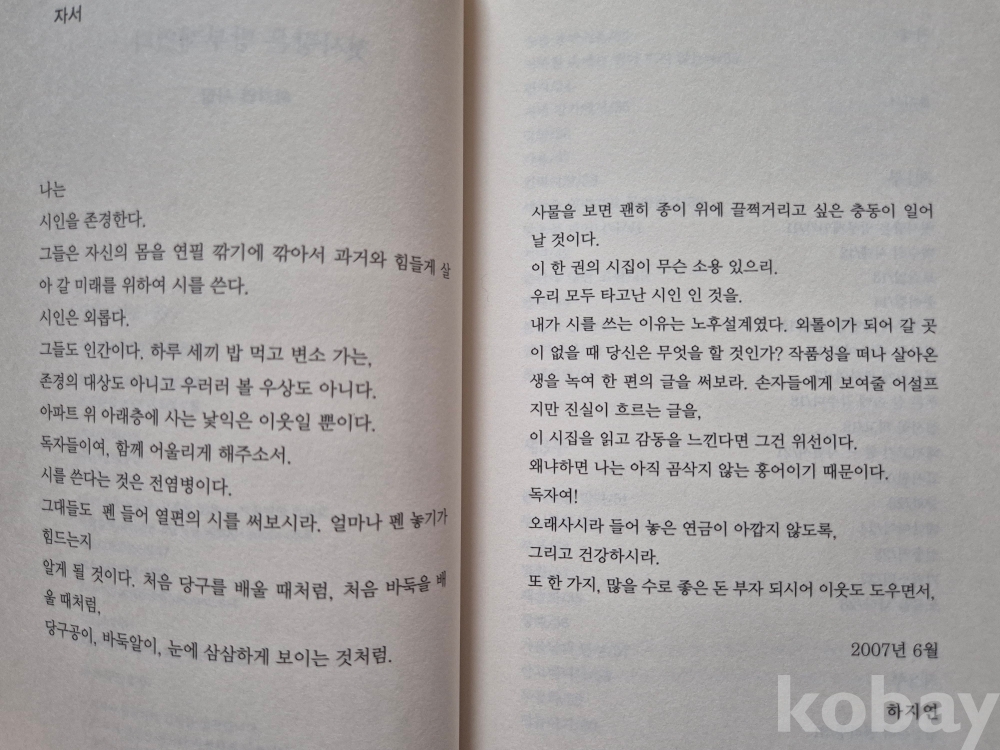 자서
나는
시인을 존경한다.
그들은 자신의 몸을 연필 깎기에 깎아서 과거와 힘들게 살
아 갈 미래를 위하여 시를 쓴다.
시인은 외롭다.
그들도 인간이다. 하루 세끼 밥 먹고 변소 가는,
존경의 대상도 아니고 우러러 볼 우상도 아니다.
아파트 위 아래층에 사는 낯익은 이웃일 뿐이다.
독자들이여, 함께 어울리게 해주소서.
시를 쓴다는 것은 전염병이다.
그대들도 펜 들어 열편의 시를 써보시라. 얼마나 펜 놓기가
힘드는지
알게 될 것이다. 처음 당구를 배울 때처럼, 처음 바둑을 배
울 때처럼,
당구공이, 바둑알이, 눈에 삼삼하게 보이는 것처럼.
사물을 보면 괜히 종이 위에 끌쩍거리고 싶은 충동이 일어
날 것이다.
이 한 권의 시집이 무슨 소용 있으리.
우리 모두 타고난 시인 인 것을.
내가 시를 쓰는 이유는 노후설계였다. 외톨이가 되어 갈 곳
이 없을 때 당신은 무엇을 할 것인가? 작품성을 떠나 살아온
생을 녹여 한 편의 글을 써보라. 손자들에게 보여줄 어설프
지만 진실이 흐르는 글을,
이 시집을 읽고 감동을 느낀다면 그건 위선이다.
왜냐하면 나는 아직 곰삭지 않는 홍어이기 때문이다.
독자여!
오래사시라 들어 놓은 연금이 아깝지 않도록,
그리고 건강하시라.
또 한 가지, 많을 수로 좋은 돈 부자 되시어 이웃도 도우면서,
2007년 6월
하지연
kobay